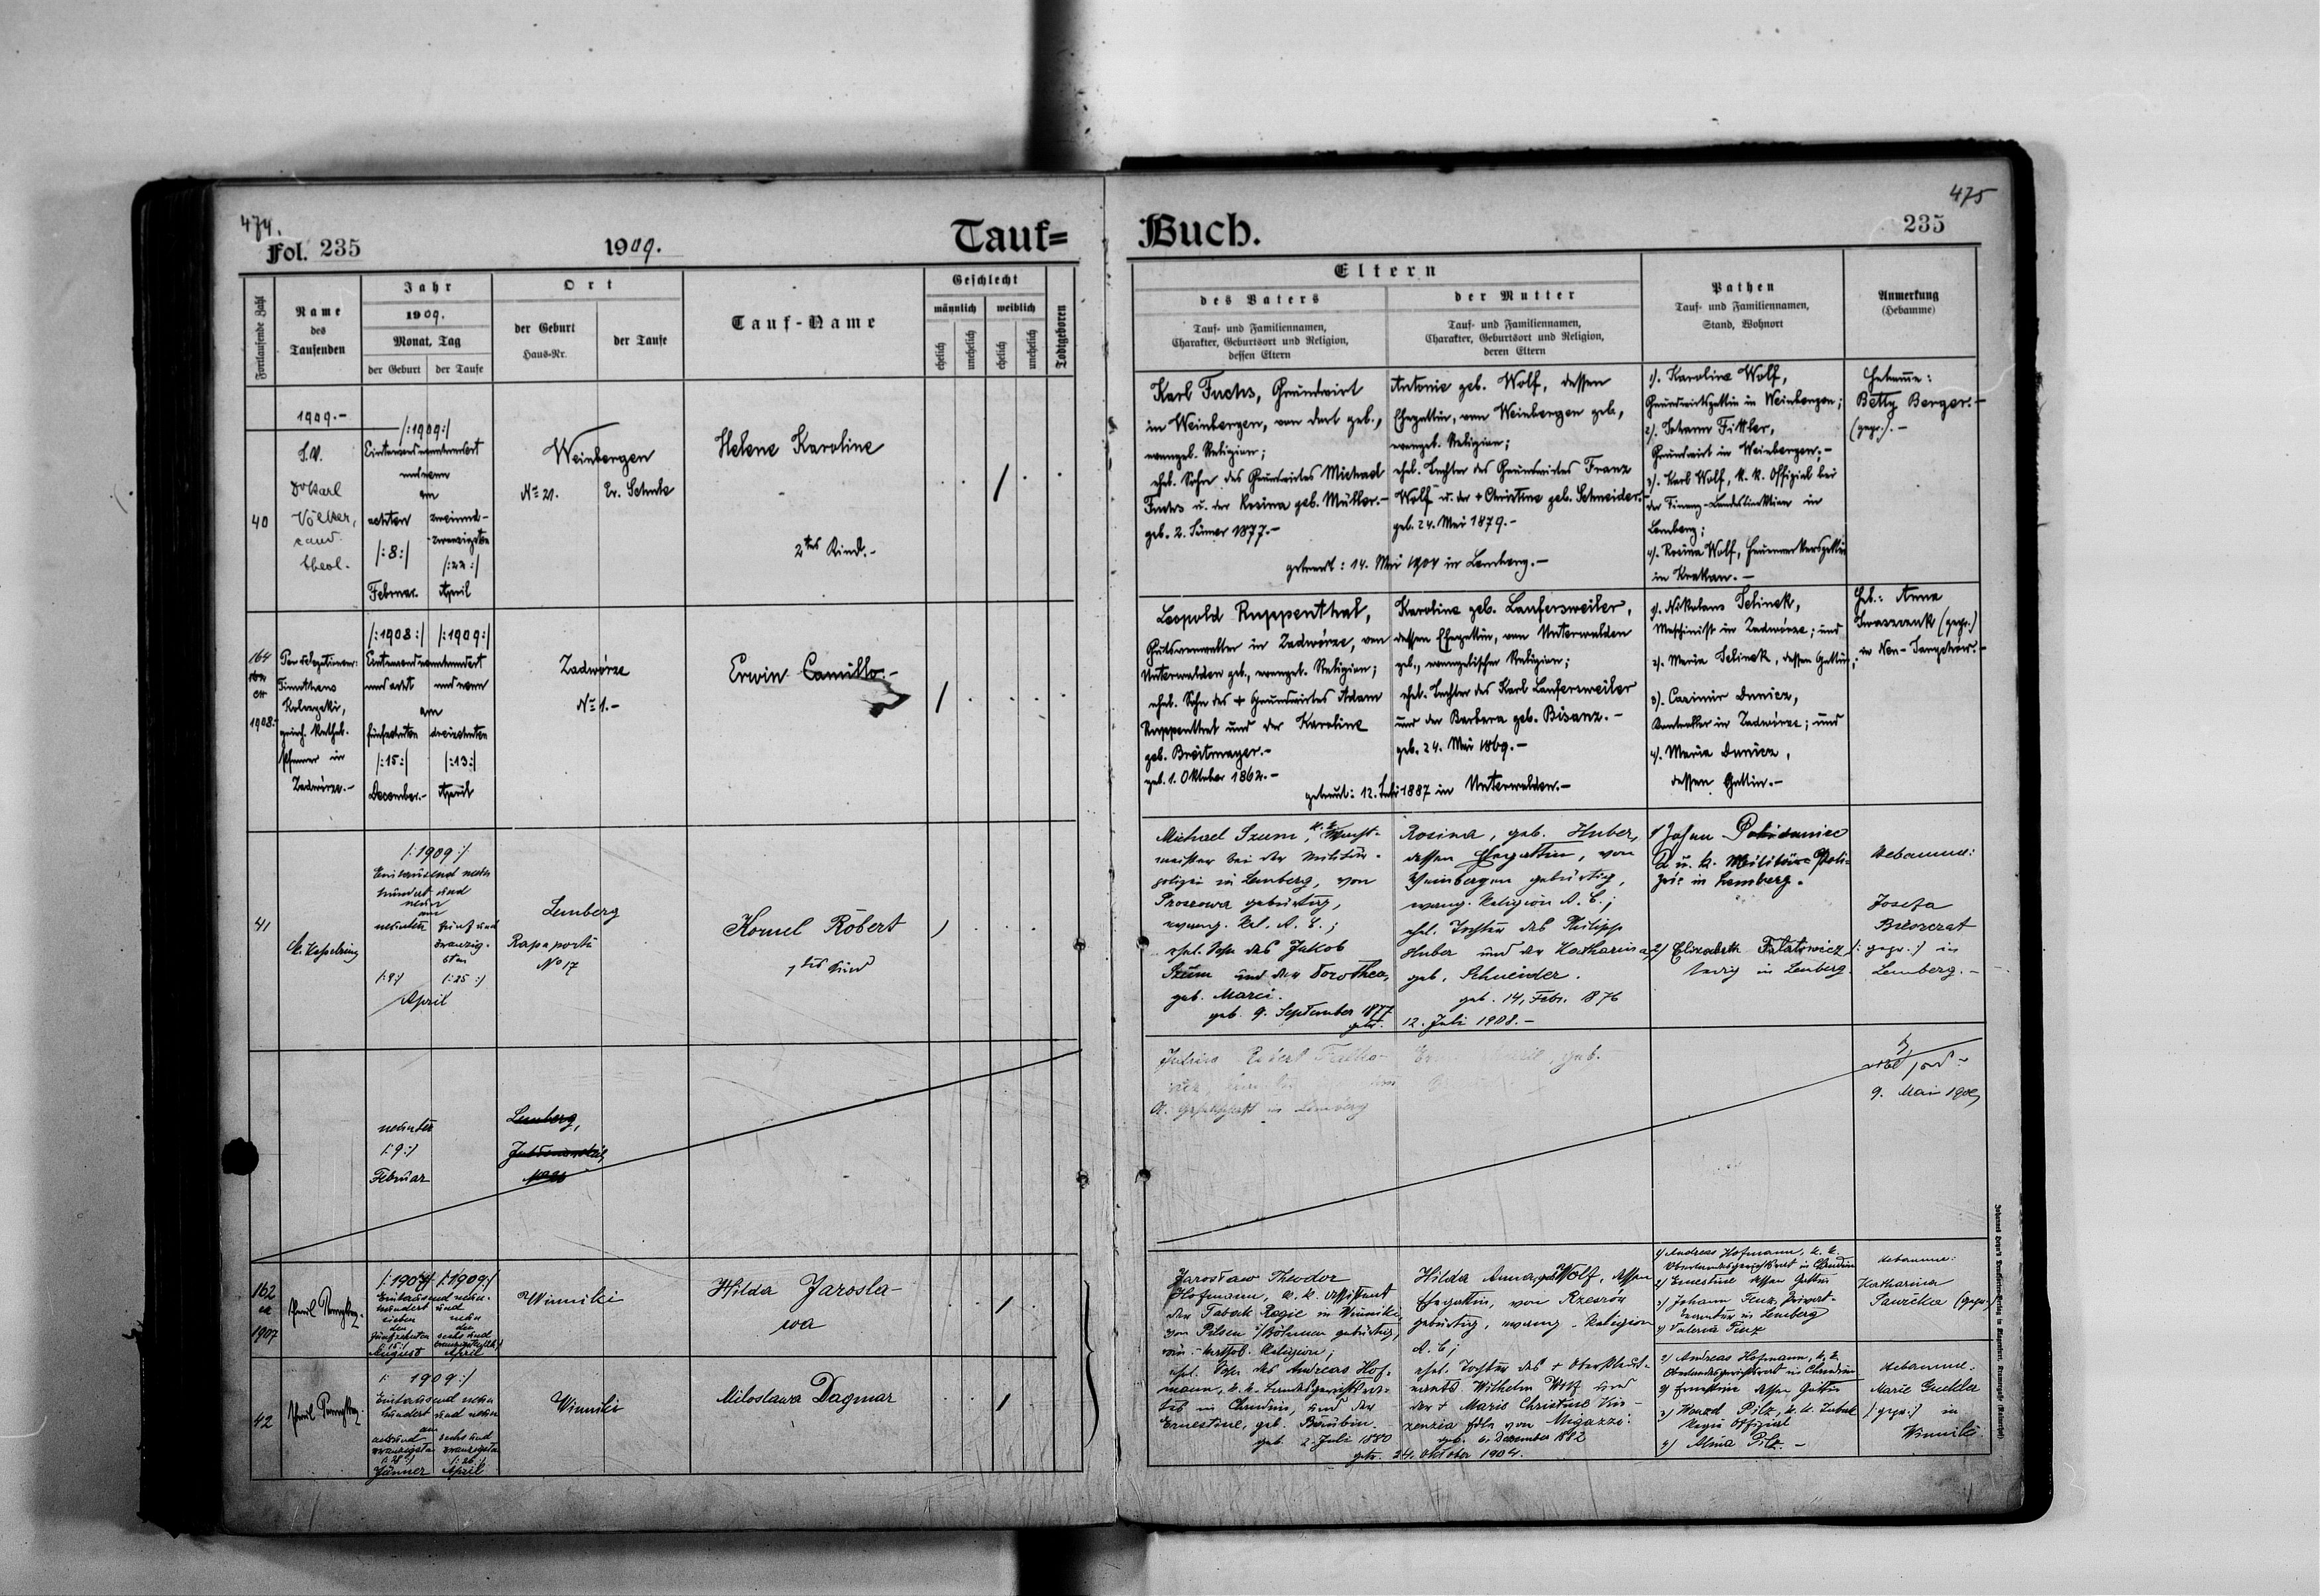 474.
Fol. 235
1909.
Tauf=
Fortlaufende Zahl
Name
des
Taufenden
Jahr
1909.
Monat, Tag
der Geburt
der Taufe
Ort
der Geburt
Haus-Nr.
der Taufe
Tauf-Name
Geschlecht
männlich
weiblich
ehelich
unehelich
ehelich
unehelich
Todtgeboren
1909.-
40
S.V.
Dr Karl
Völker,
cand.
theol.
/:1909:/
Eintausendneunhundert
undneun
am
achten
/:8:/
Februar.
zweiund-
zwanzigsten
/:22:/
April
Weinbergen
No 21.
Ev. Schule
Helene Karoline
2tes Kind.-
164
ex
1908.-
Per delegationem:
Timotheus
griech. kathol.
Pfarrer in
Zadwórze.-
/:1908:/
/:1909:/
Eintausendneunhundert
und acht
und neun
am
fünfzehnten
/:15:/
December.-
dreizehnten
/:13:/
April
Zadwórze
No 1.-
Erwin Camillo.-
41
/:1909:/
Eintausend neun
hundert und
neun
am
neunten
/:9:/
fünf und
zwanzig-
sten
/:25:/
April
Lemberg
Rapaporta
No 17
Kornel Robert
1tes Kind
neunter
/:9:/
Februar
Lemberg,
162
ex
1907
/:1907:/ /:1909:/
Eintausend neun-
hundert und
sieben
neun
den
den
fünfzehnten
/:15:/
August
sechs und
April
Winniki
Hilda Jarosla-
wa
42
/: 1909:/
Eintausend neun
hundert und neun
am
acht und
zwanzigsten
/:28:/
Jänner
sechs und
zwanzigsten
/:26:/
April
Winniki
Miloslawa Dagmar
475
Buch.
235
Eltern
des Vaters
Tauf- und Familiennamen,
Charakter, Geburtsort und Religion,
dessen Eltern
der Mutter
Tauf- und Familiennamen,
Charakter, Geburtsort und Religion,
deren Eltern
Pathen
Tauf- und Familiennamen,
Stand, Wohnort
Anmerkung
(Hebamme)
Karl Fuchs, Grundwirt
in Weinbergen, von dort geb.,
evangel. Religion;
ehel. Sohn des Grundwirtes Michael
Fuchs u. der Rosina geb. Müller.-
geb. 2. Jänner 1877.-
Antonie geb. Wolf, dessen
Ehegattin, von Weinbergen geb.,
evangel. Religion;
ehel. Tochter des Grundwirtes Franz
Wolf u. der + Christine geb. Schneider.-
geb. 24. Mai 1879.-
getraut: 14. Mai 1904 in Lemberg.-
1). Karoline Wolf,
Grundwirtsgattin in Weinbergen;
2). Johann Fittler,
Grundwirt in Weinbergen;-
3). Karl Wolf, k. k. Offizial bei
der Finanz-Landesdirektion in
Lemberg;
4). Rosina Wolf,
in Krakau.-
Hebamme:
Betty Berger.-
(gepr.).-
Leopold Ruppenthal,
Gutsverwalter in Zadwórze, von
Unterwalden geb., evangel. Religion;
ehel. Sohn des + Grundwirtes Adam
Ruppenthal und der Karoline
geb. Breitmayer.-
geb. 1. Oktober 1862.-
Karoline geb. Laufersweiler,
dessen Ehegattin, von Unterwalden
geb., evangelischer Religion;
ehel. Tochter des Karl Laufersweiler
und der Barbara geb. Bisanz.-
geb. 24. Mai 1869.-
getraut: 12. Juli 1887 in Unterwalden.-
1). Nikolaus Jelinek,
Maschinist in Zadwórze; und
2). Maria Jelinek, dessen Gattin;
3). Casimir Dunicz,
Kontrollor in Zadwórze; und
4). Maria Dunicz,
dessen Gattin.-
Heb.: Anna
Iwaszczuk (gepr.)
Michael Szum, k.k. Wacht-
meister bei der Militär-
polizei in Lemberg, von
gebürtig,
evang. Rel. A. C.;
ehel. Sohn des Jakob
Szum und der Dorothea,
geb. Marci.
geb. 9. September 1877
Rosina, geb. Huber,
dessen Ehegattin, von
Weinbergen gebürtig,
evang. Religion A. C.;
ehel. Tochter des Philipp
Huber und der Katharina,
geb. Schneider.
geb. 14. Febr. 1876
getr. 12. Juli 1908.-
1) Johann
k. u. k. Militär-Poli-
in Lemberg.
2) Elisabeth Falatowicz
ledig in Lemberg.
Hebamme:
Josefa
/: gepr.:/ in
Lemberg.-
Julius Robert
in Lemberg
9. Mai
Jarosław Theodor
Hofmann, k. k. Assistent
der Tabak-Regie in Winniki,
von Pilsen i/Böhmen gebürtig,
röm.-kathol. Religion;
ehel. Sohn des Andreas Hof-
mann, k. k.
in Chrudim, und der
Ernestine, geb.
geb. 2. Juli 1880
Hilda Anna, geb. Wolf, dessen
Ehegattin, von Rzeszów
gebürtig, evang. Religion
A. C;
ehel. Tochter des + Oberstleut-
nants Wilhelm Wolf und
der + Marie Christine
von Migazzi.
geb. 6. Dezember 1882
getr. 24. Oktober 1904.
1) Andreas Hofmann, k. k.
in Chrudim
2) Ernestine dessen Gattin
3) Johann Finz, Privat-
in Lemberg
4) Valeria Finz
Hebamme:
Katharina
(gepr.)
1) Andreas Hofmann, k. k.
in Chrudim
2) Ernestine dessen Gattin
3) Wenzel Pilz, k. k. Tabak
Regie Offizial
4) Alma Pilz.-
Hebamme:
Marie
/: gepr.:/ in
Winniki